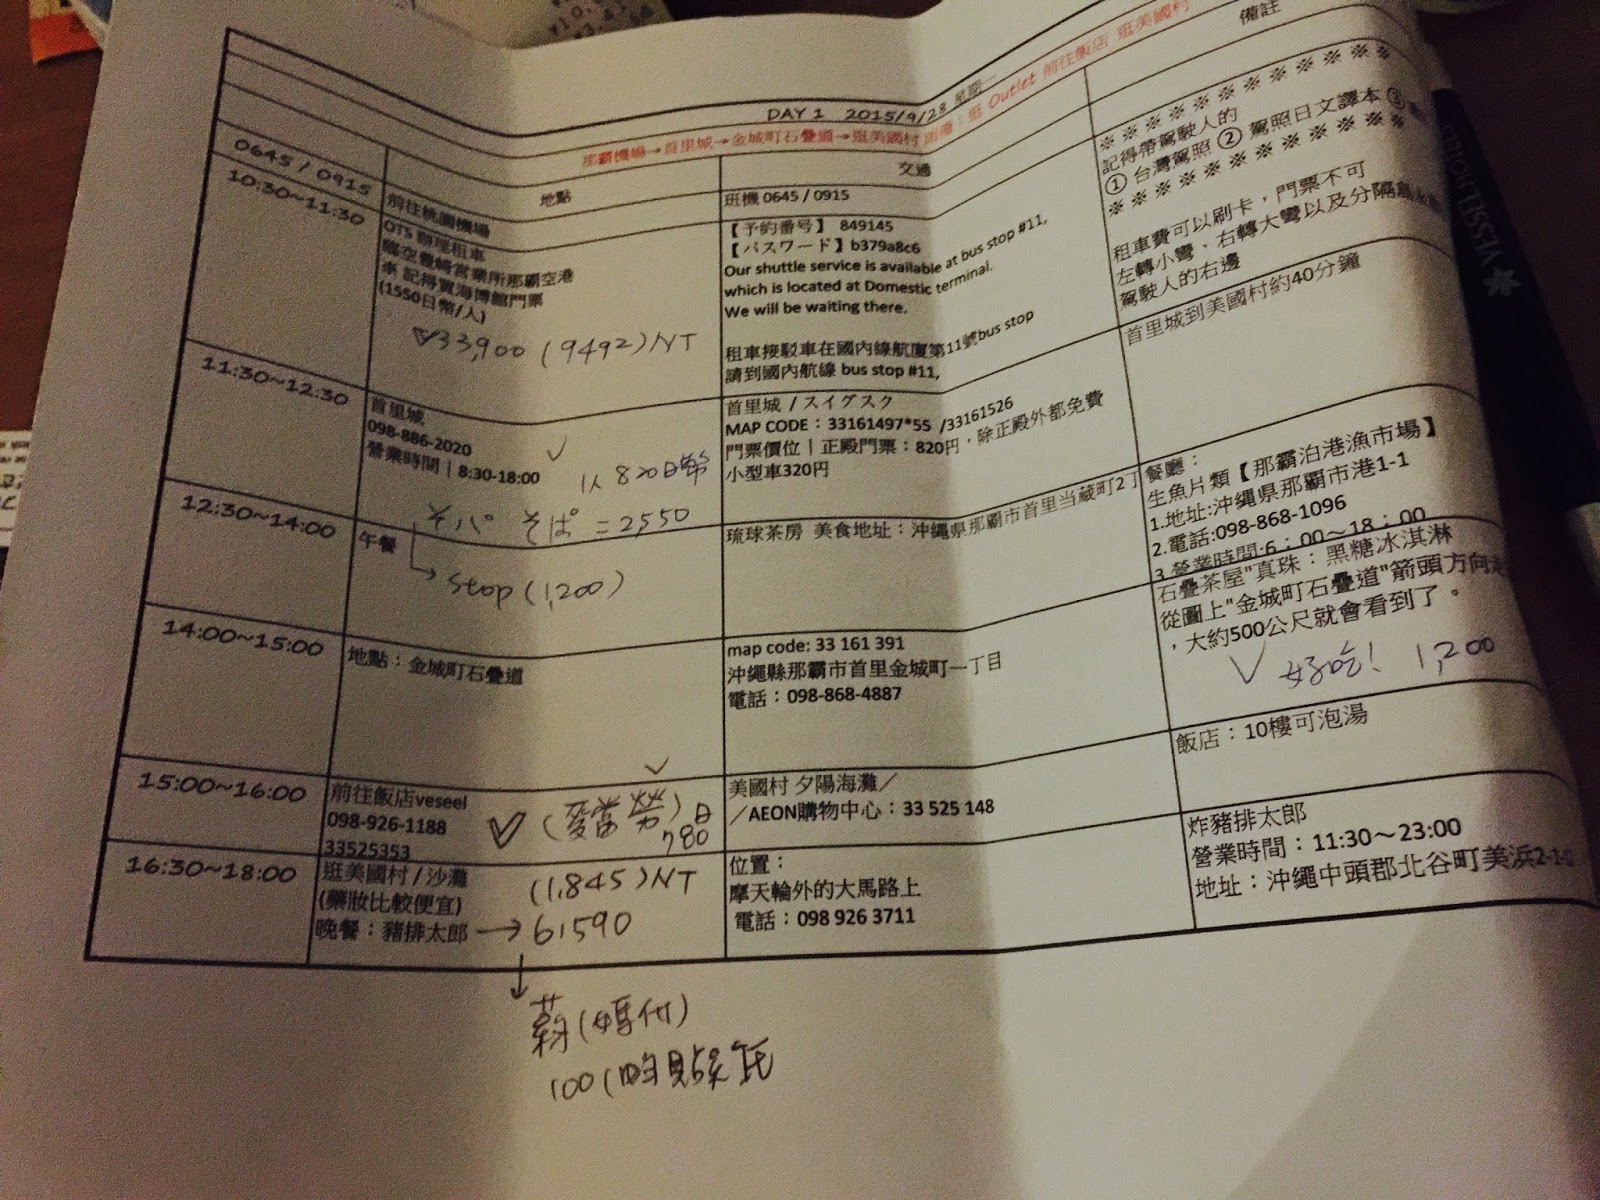 備註
DAY 1 2015/9/28 星期一
那霸機場→首里城→金城町石疊道→逛美國村 雨備：逛 Outlet 前往飯店 逛美國村
地點
交通
0645 / 0915
前往桃園機場
班機 0645 / 0915
※※※※※※※※※※
記得帶駕駛人的
① 台灣駕照 ② 駕照日文譯本 ③
※※※※※※※※※※
10:30~11:30
OTS 辦理租車
臨空豊崎営業所那霸空港
※ 記得買海博館門票
(1550日幣/人)
✓33,900 (9492) NT
【予約番号】 849145
【パスワード】b379a8c6
Our shuttle service is available at bus stop #11,
which is located at Domestic terminal.
We will be waiting there.
租車接駁車在國內線航廈第11號bus stop
請到國內航線 bus stop #11,
租車費可以刷卡，門票不可
左轉小彎、右轉大彎以及分隔島永遠
駕駛人的右邊
11:30~12:30
首里城
098-886-2020
營業時間｜8:30-18:00
✓
1人 820日幣
首里城 / スイグスク
MAP CODE：33161497*55 /33161526
門票價位｜正殿門票：820円，除正殿外都免費
小型車320円
首里城到美國村約40分鐘
12:30~14:00
午餐
そば そば = 2550
stop (1,200)
琉球茶房 美食地址：沖縄県那霸市首里当蔵町2丁
餐廳：
生魚片類【那霸泊港漁市場】
1.地址:沖縄県那霸市港1-1
2.電話:098-868-1096
3.營業時間:6：00～18：00
14:00~15:00
地點：金城町石疊道
map code: 33 161 391
沖繩縣那霸市首里金城町一丁目
電話：098-868-4887
石疊茶屋"真珠：黑糖冰淇淋
從圖上"金城町石疊道"箭頭方向走
，大約500公尺就會看到了。
✓ 好吃! 1,200
15:00~16:00
前往飯店veseel
098-926-1188
33525353
✓ (麥當勞) 日
780
✓
美國村 夕陽海灘／
／AEON購物中心：33 525 148
飯店：10樓可泡湯
16:30~18:00
逛美國村 / 沙灘
(藥妝比較便宜)
晚餐：豬排太郎 → 6,590
(1,845) NT
位置：
摩天輪外的大馬路上
電話：098 926 3711
炸豬排太郎
營業時間：11:30～23:00
地址：沖繩中頭郡北谷町美浜2-1-
(媽付)
100
VESSEL HOTEL